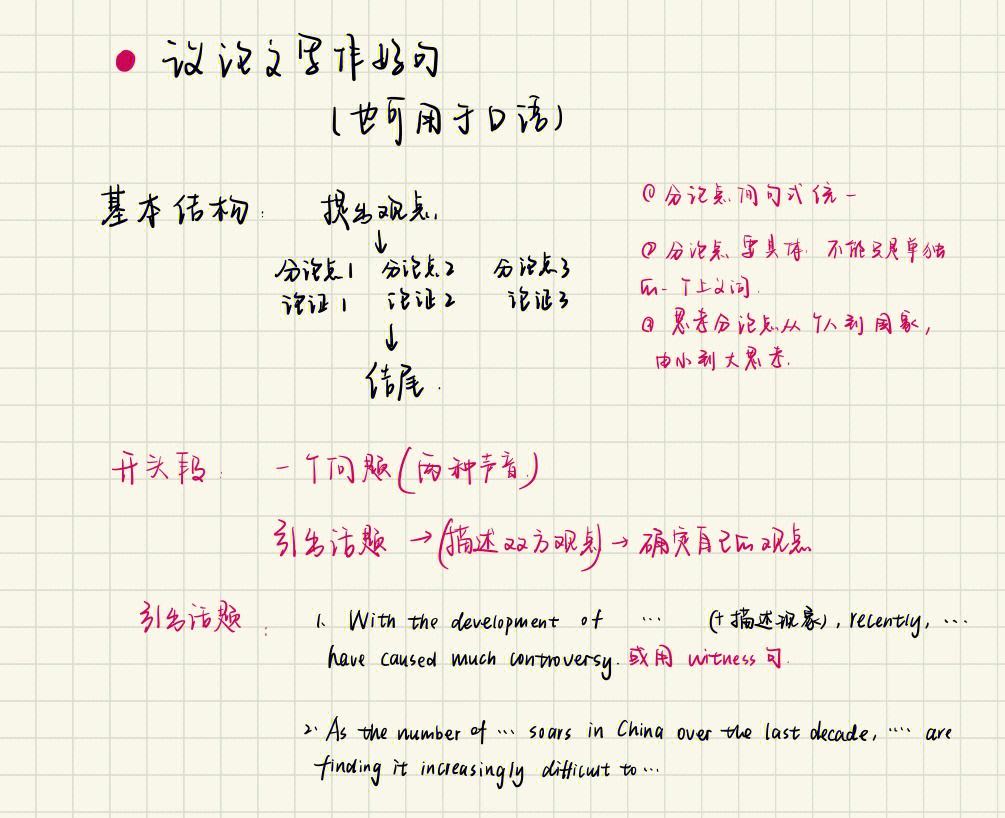 • 议论文写作好句
(也可用于口语)
基本结构: 提出观点.
↓
分论点1 分论点2 分论点3
论证1 论证2 论证3
↓
结尾.
① 分论点间句式统一
② 分论点要具体. 不能只是单独
的一个上义词.
③ 思考分论点从个人到国家,
由小到大思考.
开头段: 一个问题(两种声音.)
引出话题 → (描述双方观点) → 确定自己的观点
引出话题: 1. With the development of ... (+描述现象), recently, ...
have caused much controversy. 或用 witness 句.
2. As the number of ... soars in China over the last decade, .... are
finding it increasingly difficult to ...